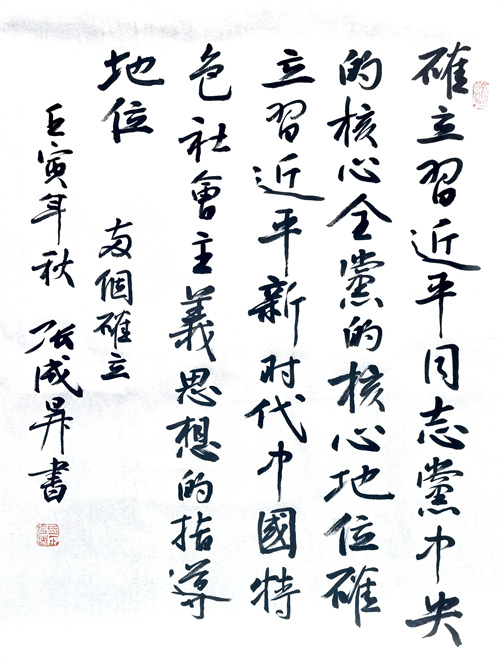 確立習近平同志黨中央
的核心全黨的核心地位確
立習近平新时代中國特
色社會主義思想的指導
地位
两個確立
壬寅年秋 张成昇書